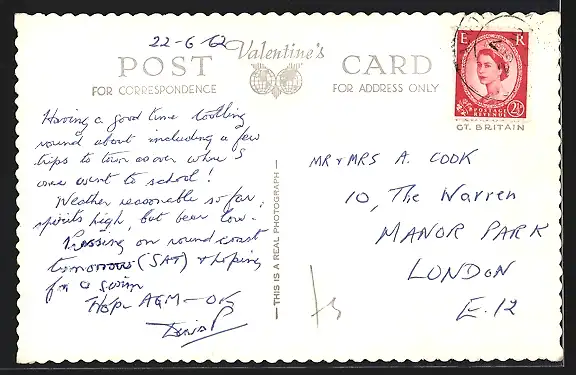 22-6-62
Valentine's
POST CARD
FOR CORRESPONDENCE
FOR ADDRESS ONLY
E R
POSTAGE REVENUE
2½D
GT. BRITAIN
Having a good time tootling
round about including a few
trips to town over where I
once went to school!
Weather reasonable so far,
spirits high, but beer low.
Pressing on round coast
tomorrow (SAT) & hoping
for a swim
Hope AGM - OK
THIS IS A REAL PHOTOGRAPH
MR & MRS A. COOK
10, The Warren
MANOR PARK
LONDON
E.12